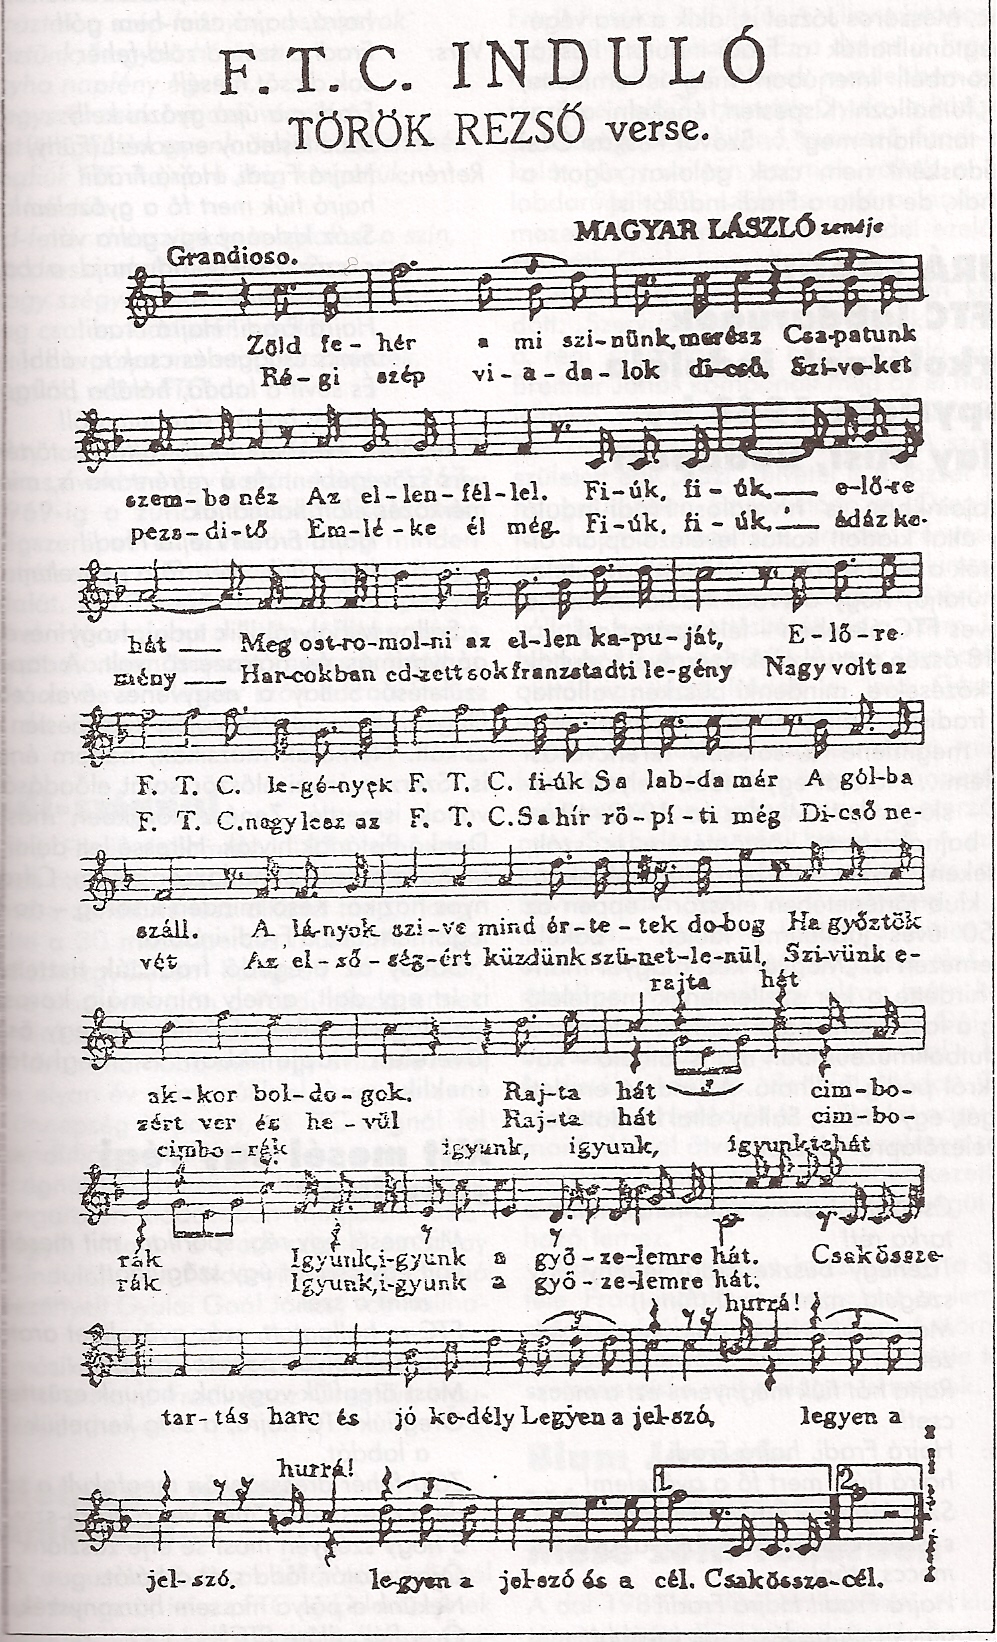 F. T. C. INDULÓ
TÖRÖK REZSŐ verse.
MAGYAR LÁSZLÓ zenéje
Grandioso.
Zöld fe - hér a mi szi - nünk, merész Csa-patunk
Ré - gi szép vi - a - da - lok di-cső, Szi-ve-ket
szem - be néz Az el - len - fél - lel. Fi - úk, fi - úk, e - lő-re
pezs - di - tő Em - lé - ke él még. Fi - úk, fi - úk, ádáz ke-
hát Meg ost-ro-mol-ni az el-len ka-pu-ját, E - lő - re
mény Har-cokban ed-zett sok franzstadti le-gény Nagy volt az
F. T. C. le-gé-nyek F. T. C. fi-úk S a lab-da már A gól-ba
F. T. C. nagy lesz az F. T. C. S a hír rö - pí - ti még Di-cső ne-
száll. A lá-nyok szi-ve mind ér-te - tek do-bog Ha győztök
vét Az el - ső - ség-ért küzdünk szü-net-le-nül, Szi-vünk e-
rajta hát
ak-kor bol-do-gok. Raj-ta hát cim-bo-
zért ver és he-vül Raj-ta hát cim-bo-
cimbo-rák igyunk, igyunk, igyunk is hát
rák Igyunk, i-gyunk a győ - ze-lemre hát. Csak össze-
rák Igyunk, i-gyunk a győ - ze-lemre hát:
hurrá!
tar-tás harc és jó ke-dély Legyen a jel-szó, legyen a
hurrá!
1. 2.
jel-szó. le-gyen a jel-szó és a cél. Csak össze-cél.